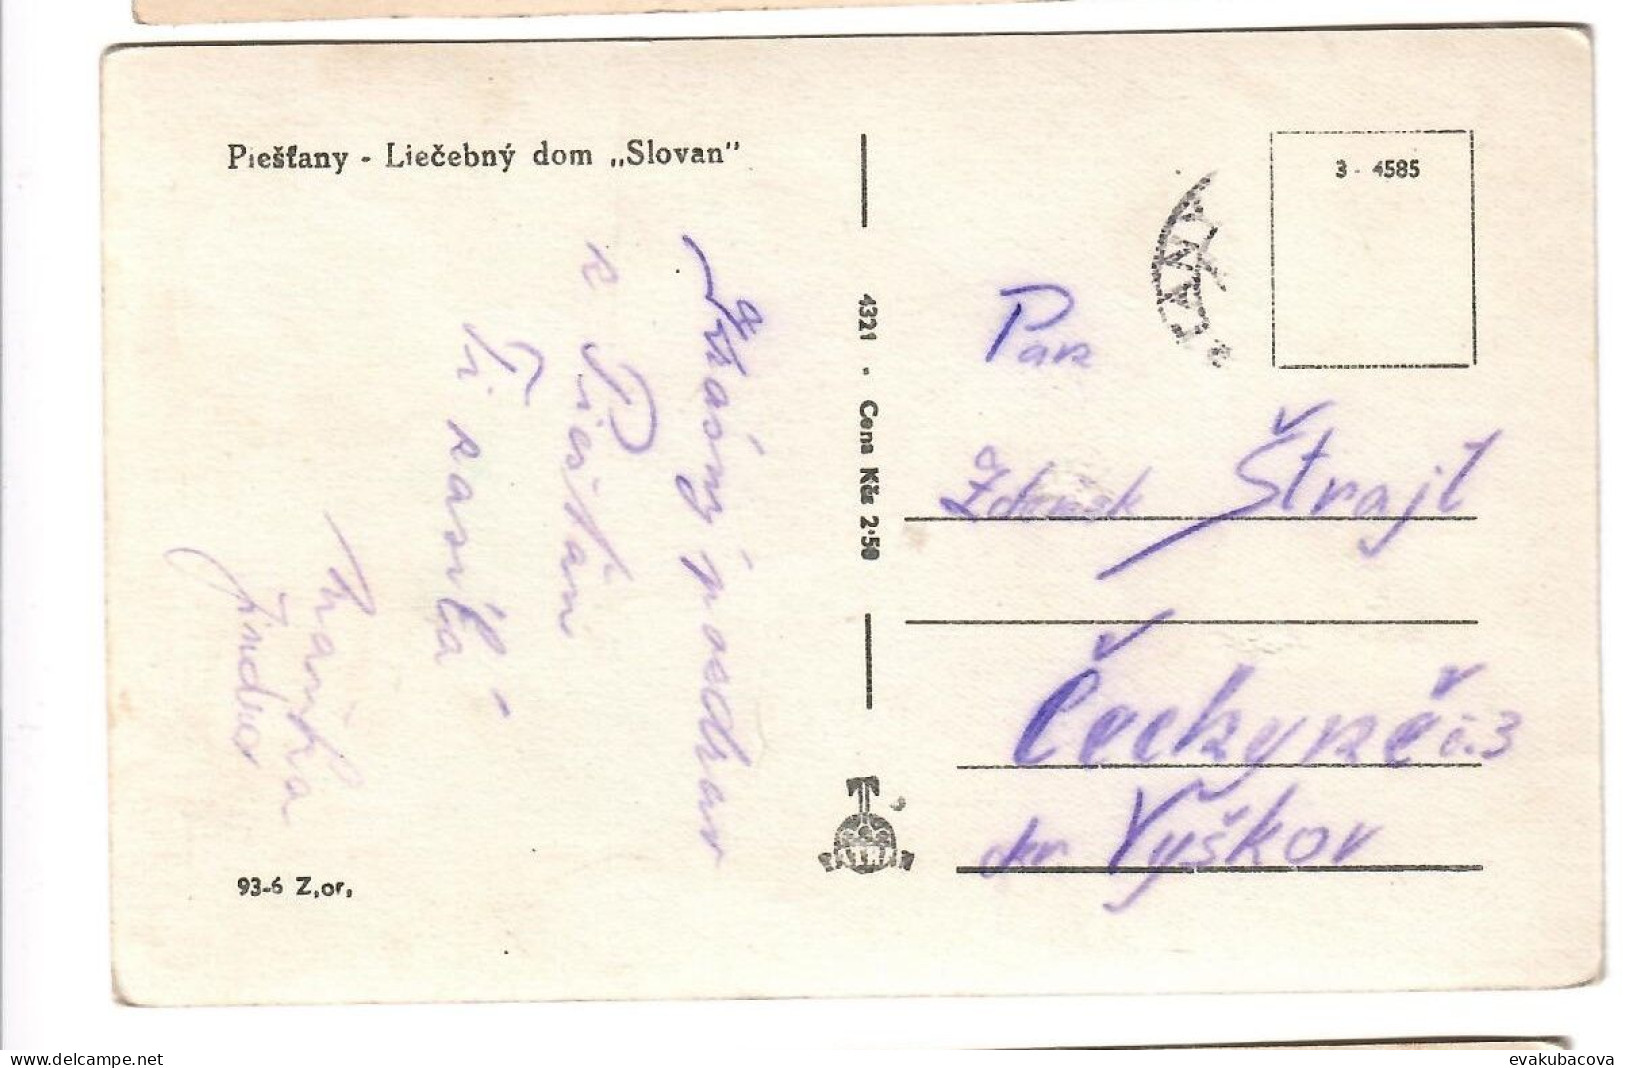 Piešťany - Liečebný dom „Slovan"
Krásný pozdrav
z Piešťan
Ti zasílá
Jindra
93-6 Z,or,
4321 - Cena Kčs 2·50
TATRAN
3 - 4585
ŤANY
Pan
Zdenek Štrajt
Čechyně č.3
okr. Vyškov
www.delcampe.net
evakubacova